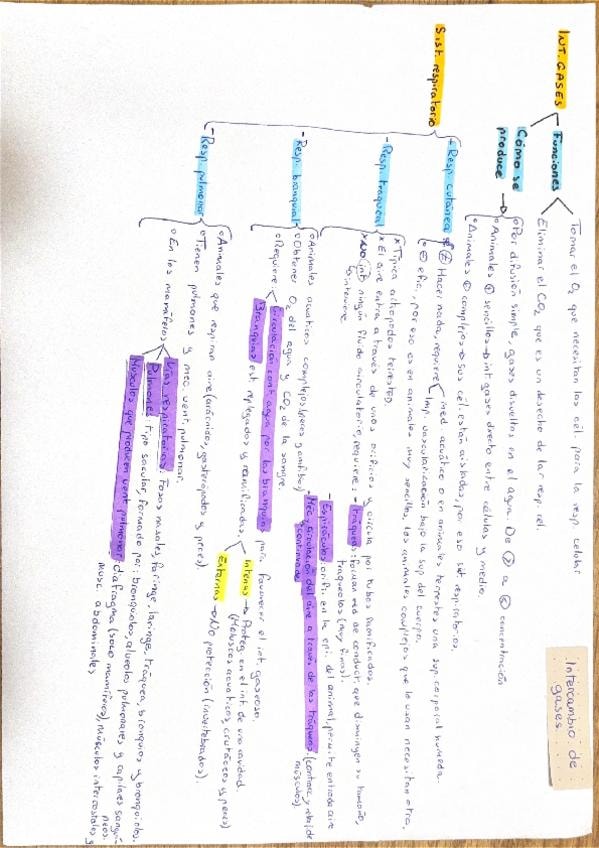 Intercambio de gases
INT. GASES
Funciones
Tomar el O₂ que necesitan las cél. para la resp. celular
Eliminar el CO₂ que es un desecho de la resp. cel.
Cómo se produce →
Por difusión simple, gases disueltos en el agua. De + a - concentración
Animales + sencillos → int gases directo entre células y medio.
Animales + complejos → sus cél. están aisladas, por eso sist. respiratorios.
Sist. respiratorio
- Resp. cutánea
Hacer nada, requiere
med. acuático o en animales terrestes una sup. corporal húmeda.
Imp. vascularización bajo la sup del cuerpo.
- efic., por eso es en animales muy sencillos, los animales complejos que la usan necesitan otra.
- Resp. traqueal
* Típica artrópodos terrestes
* El aire entra a través de unos orificios y circula por tubos ramificados.
* No int ningún fluido circulatorio, requiere:
interviene
- tráqueas: forman red de conduct. que disminuyen su tamaño,
traqueolas (muy finos).
- Espiráculos: orifi. en la epi. del animal, permite entrada aire
- Mec. circulación del aire a través de las tráqueas. (contrae y relaj de
y continuada músculos).
- Resp. branquial
Animales acuáticos complejos (peces y anfibios)
Obtener O₂ del agua y CO₂ de la sangre.
Requiere:
Circulación cont. agua por las branquias para favorecer el int. gaseoso.
Branquias est. replegadas y ramificadas.
Internas → Proteg. en el int. de una cavidad
(Moluscos acuáticos, crustáceos y peces)
Externas → No protección (invertebrados).
- Resp. pulmonar
Animales que respiran aire (arácnidos, gasterópodos y peces).
Tienen pulmones y mec. vent. pulmonar.
En los mamíferos
Vías respiratorias: Fosas nasales, faringe, laringe, tráquea, bronquios y bronquiolos.
Pulmones: tipo sacular, formado por: bronquiolos, alveolos pulmonares y capilares sanguíneos.
Músculos que producen vent. pulmonar: diafragma (solo mamíferos), músculos intercostales y
musc. abdominales